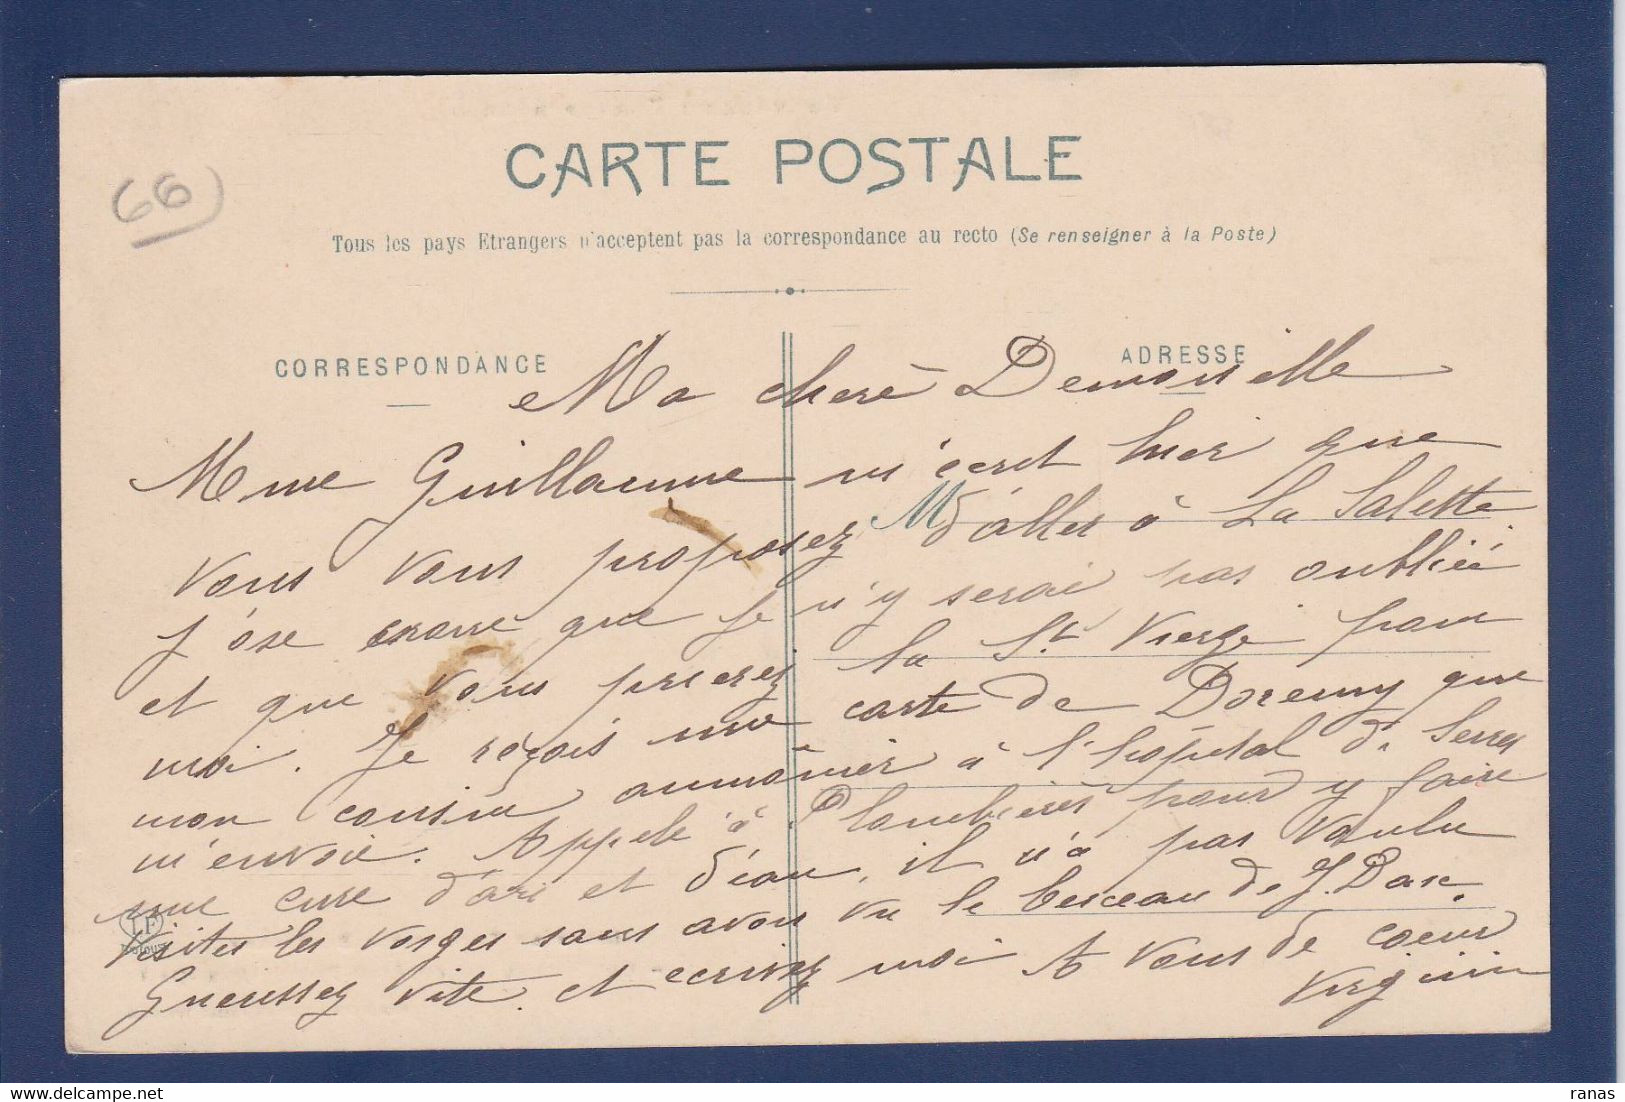 66
CARTE POSTALE
Tous les pays Etrangers n'acceptent pas la correspondance au recto (Se renseigner à la Poste)
CORRESPONDANCE
ADRESSE
Ma chere Demoiselle
Mme Guillaume m'ecrit hier que
vous vous proposez d'aller à La Salette
J'ose croire que je n'y serai pas oubliée
et que vous prierez la St Vierge pour
moi. Je reçois une carte de Doremy que
mon cousin aumônier à l'hôpital de Serres
m'envoie. Appelé à Plombières pour y faire
une cure d'air et d'eau, il n'a pas voulu
visiter les Vosges sans avoir vu le berceau de J. Darc.
Guerissez vite et ecrivez moi A vous de coeur
Virginie
LF
M
ranas